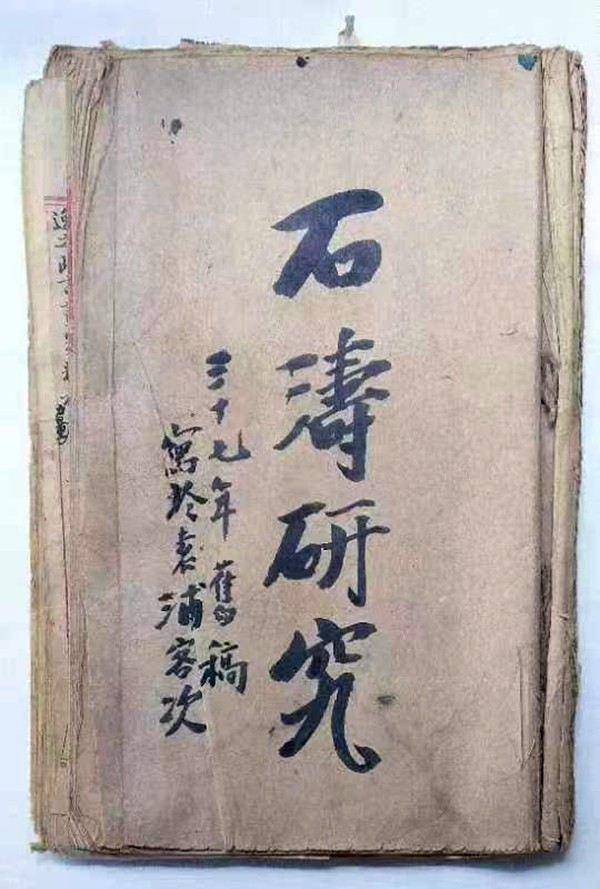 石濤研究
三十七年舊稿
寫於袁浦客次